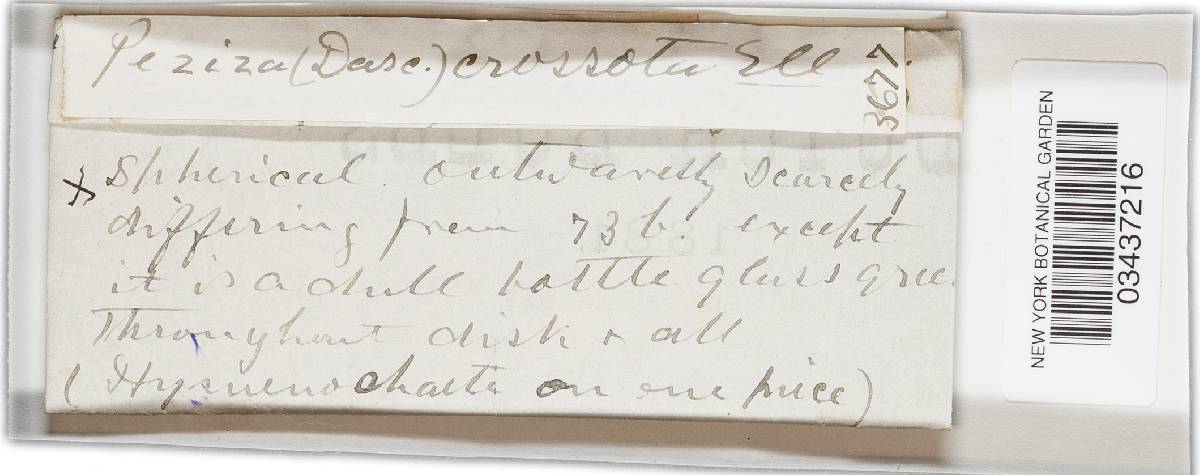 Peziza (Dasc.) crossota Ell
3677
x spherical. outwardly scarcely
differing from 73 b. except
it is a dull bottle glass gree
throughout disk + all
(Hymenochaete on one piece)
NEW YORK BOTANICAL GARDEN
03437216